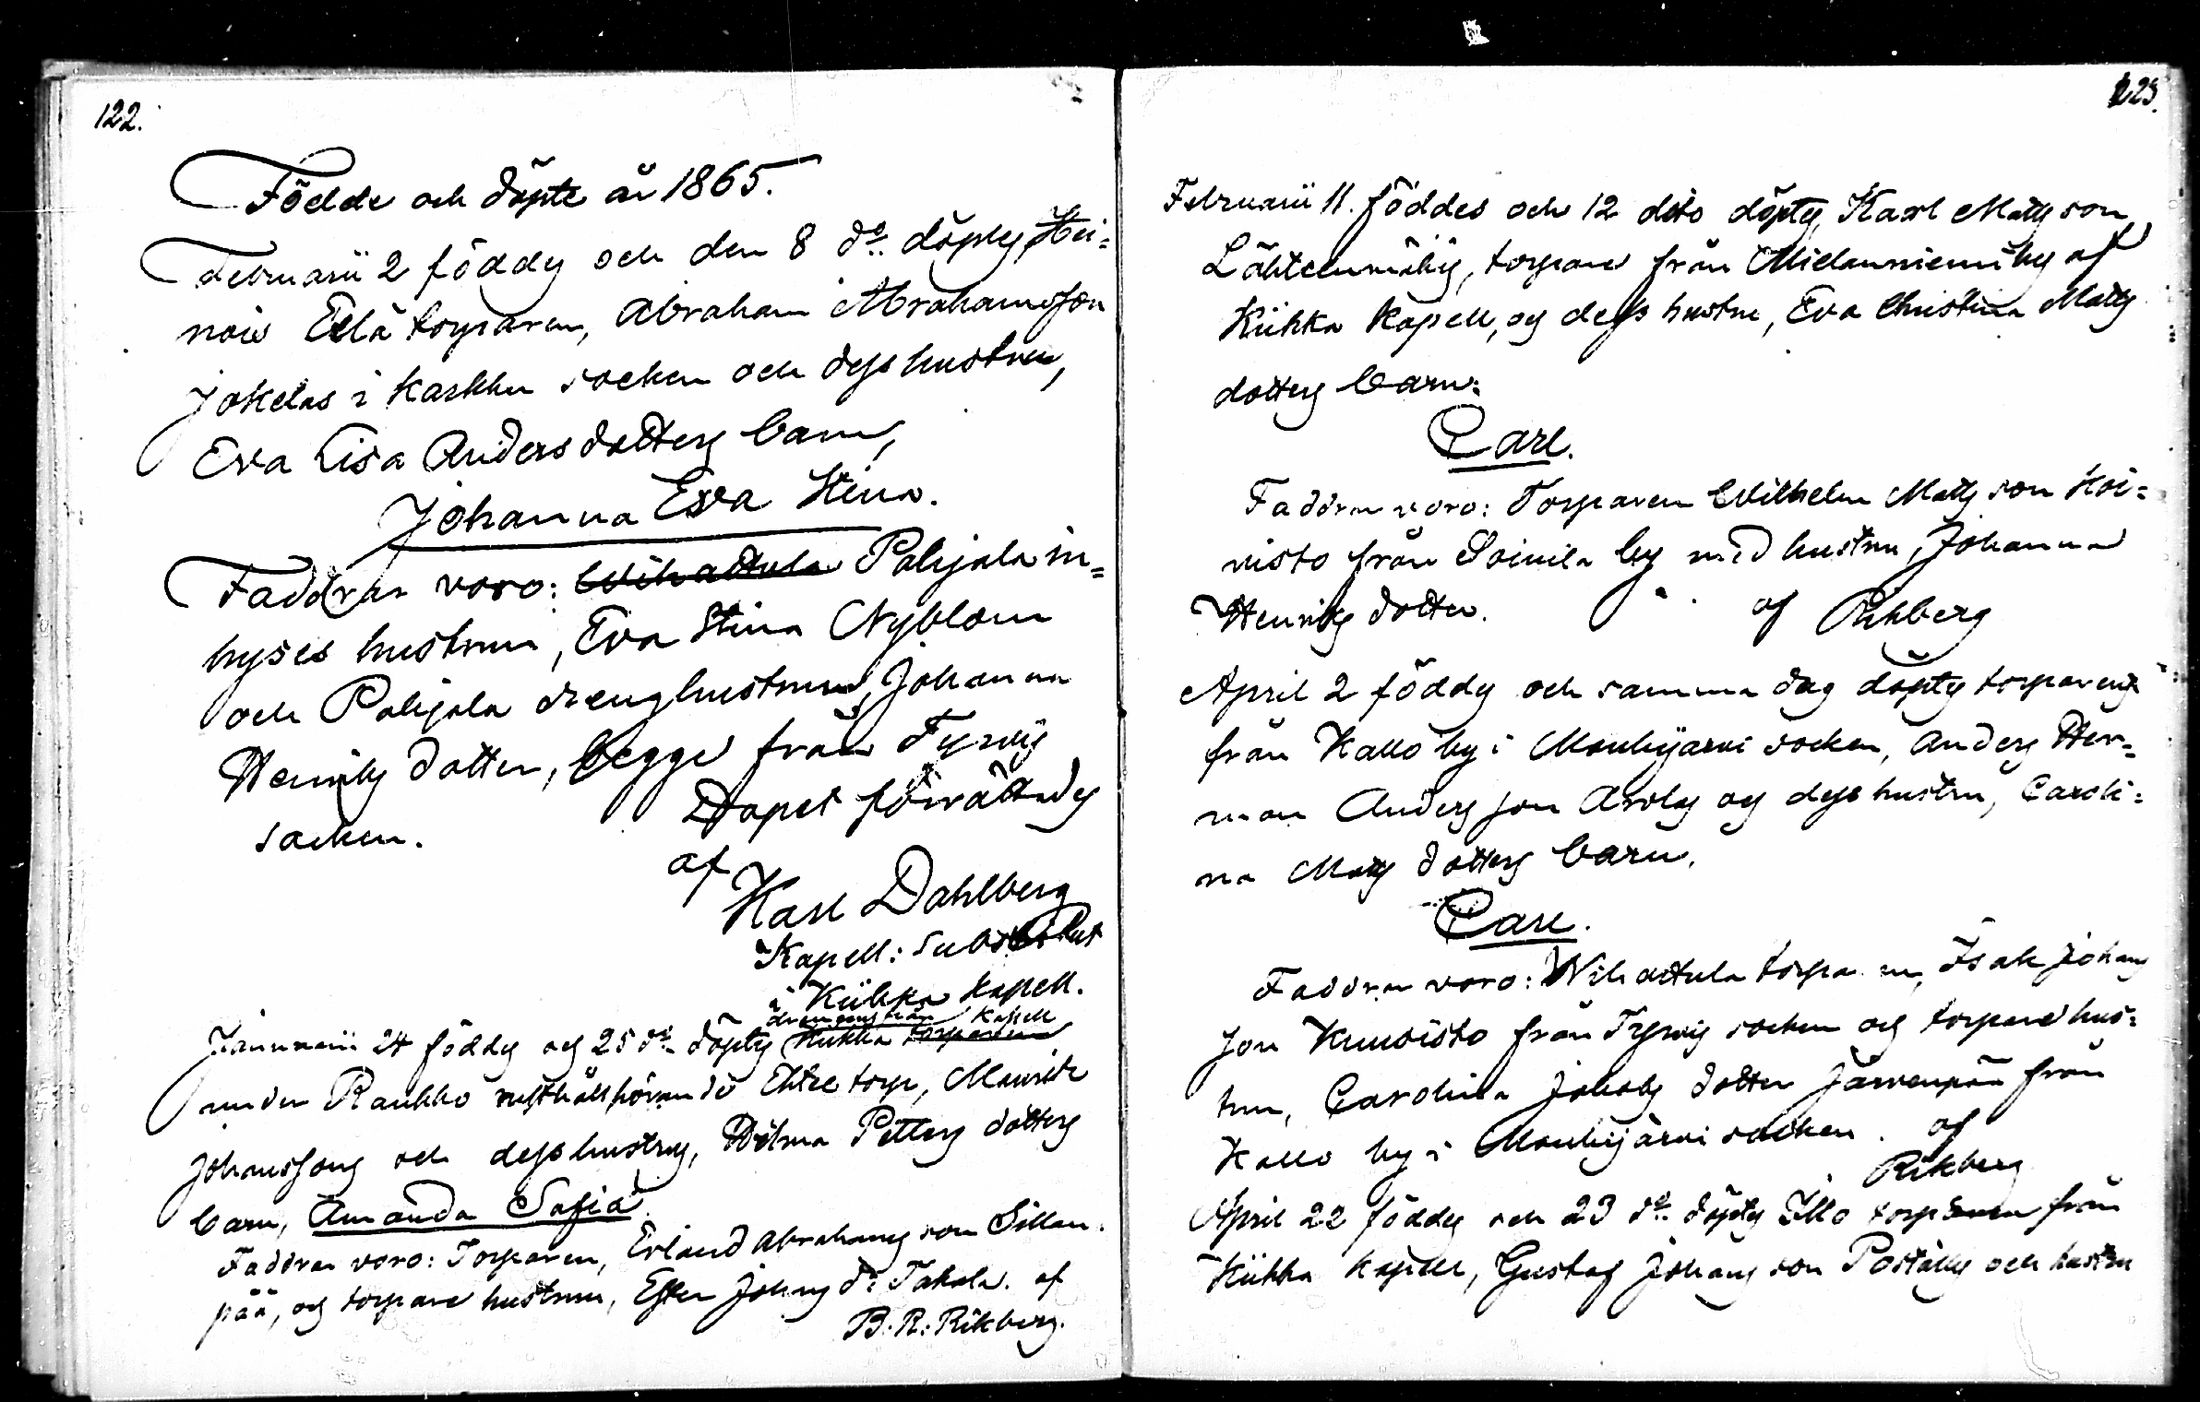 122.
Födde och döpte år 1865.
Februarii 2 föddes och den 8 do döptes Hei=
nois Ellä torparen, Abraham Abrahamsson
Jokelas i Karkku socken och dess hustru,
Eva Lisa Andersdotters barn,
Johanna Eva Stina.
Faddrar voro: Wihattula Pohjala in=
hyses hustrun, Eva Stina Nyblom
och Pohjala dränghustrun, Johanna
Henriks dotter, begge från Tyrvis
socken. Dopet förrättades
af
Karl Dahlberg
Kapell: Substitut
i Kiikka kapell.
drängens från Kapell
Januarii 24 föddes og 25 do döptes Kiikka torparen
under Raukko rusthåll hörande Ehtee torp, Maurits
Johanssons och dess hustrus, Wilma Petters dotters
barn, Amanda Sofia.
Faddrar voro: Torparen, Erland Abrahams son Sillan=
pää, og torpare hustrun, Ester Johans dr Takala. af
B. R: Rikberg.
123.
Februarii 11. föddes och 12 dito döptes, Karl Matts son
Lähteenmäkis, torpare från Mielanniemi by af
Kiikka Kapell, og dess hustru, Eva Christina Matts
dotters barn:
Carl.
Faddrar voro: Torparen Wilhelm Matts son Koi=
visto från Soinila by med hustru, Johanna
Henriks dotter. af Rikberg
April 2 föddes och samma dag döptes torparens
från Kallo by i Mouhijärvi socken, Anders Her=
man Anders son Arolas og dess hustru, Caroli=
na Matts dotters barn.
Carl.
Faddrar voro: Wihattula torparen, Isak Johans
son Kuusisto från Tyrvis socken og torpare hus=
trun, Carolina Jakobs dotter Järvenpää från
Kallo by i Mouhijärvi socken. af
Rikberg
April 22 föddes och 23 do döptes Illo torparen från
Kiikka kapell, Gustaf Johans son Postális och hustru